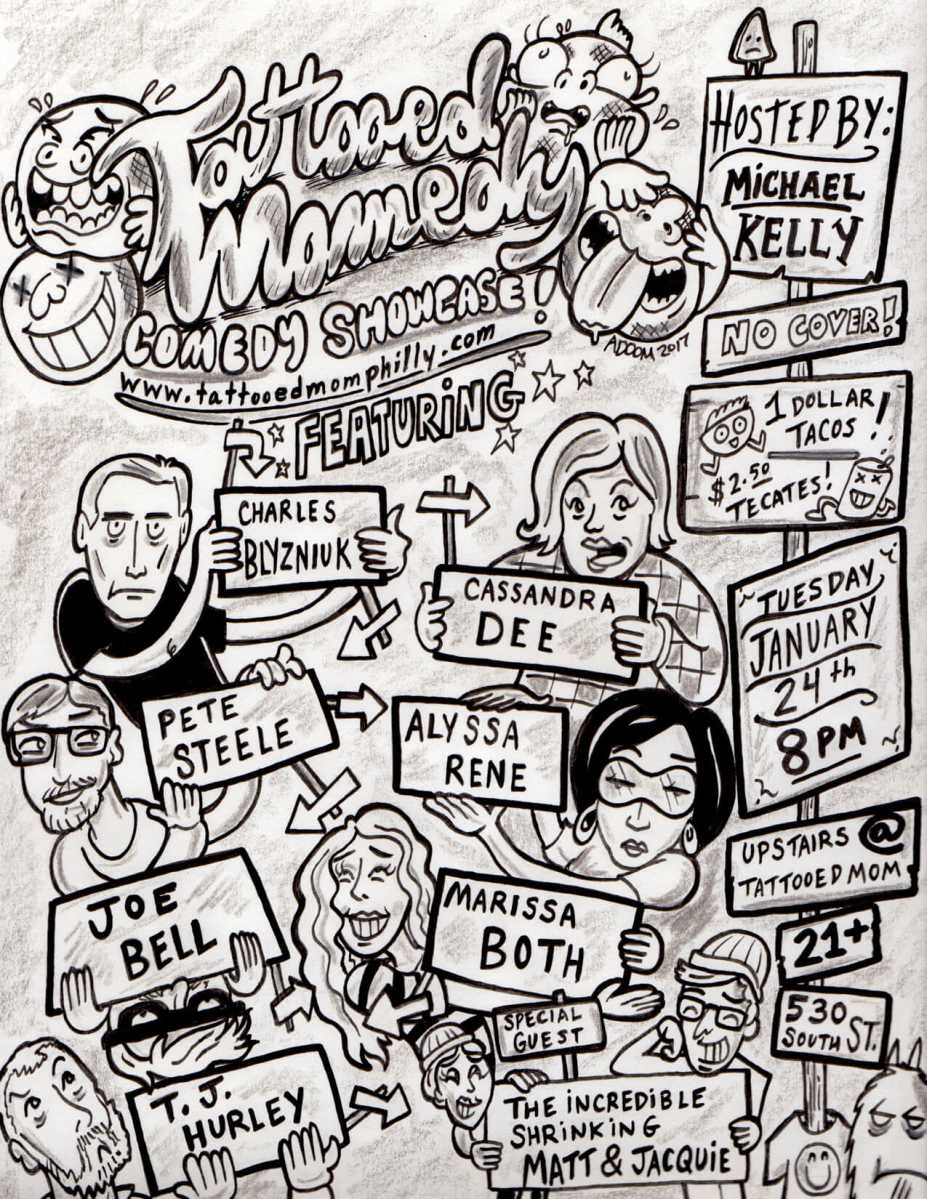 Tattooed
Momedy
COMEDY SHOWCASE!
www.tattooedmomphilly.com
ADOOM 2017
FEATURING
HOSTED BY:
MICHAEL
KELLY
NO COVER!
1 DOLLAR
TACOS!
$2.50
TECATES!
TUESDAY
JANUARY
24th
8PM
UPSTAIRS @
TATTOOED MOM
21+
530
SOUTH ST.
CHARLES
BLYZNIUK
CASSANDRA
DEE
PETE
STEELE
ALYSSA
RENE
JOE
BELL
MARISSA
BOTH
T.J.
HURLEY
SPECIAL
GUEST
THE INCREDIBLE
SHRINKING
MATT & JACQUIE